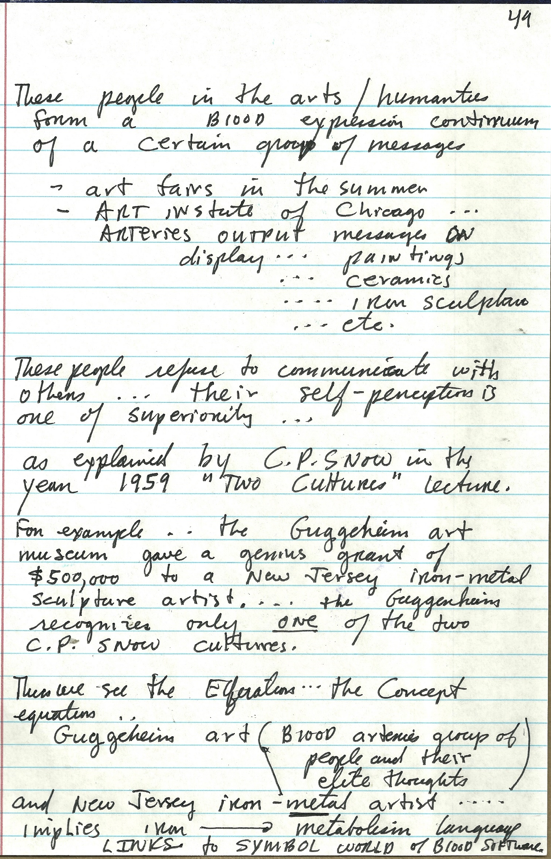 49
These people in the arts / humanties
form a BlOOD expression continuum
of a certain group of messages
- art fairs in the summer
- ART instate of Chicago ...
ARTeries OUTPUT messages ON
display ... paintings
... ceramics
.... iron sculpture
... etc.
These people refuse to communicate with
others ... their self-perception is
one of superiority ...
as explained by C.P. SNow in the
year 1959 "Two Cultures" lecture.
For example .. the Guggeheim art
museum gave a genius grant of
$500,000 to a New Jersey iron-metal
sculpture artist. ... the Guggenheim
recognizes only ONE of the two
C.P. SNow cultures.
Thus we see the ... the Concept
equation ..
Guggeheim art (Blood arteries group of
people and their
elite thoughts)
and New Jersey iron-metal artist .....
implies iron → metabolism language
LINKS to SYMBOL WORLD of Blood Software